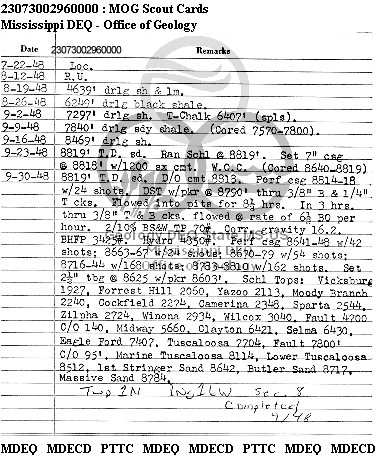 23073002960000 : MOG Scout Cards
Mississippi DEQ - Office of Geology
Date 23073002960000 Remarks
7-22-48 Loc.
8-12-48 R.U.
8-19-48 4639' drlg sh & lm.
8-26-48 6249' drlg black shale.
9-2-48 7297' drlg sh. T-Chalk 6407' (spls).
9-9-48 7840' drlg sdy shale. (Cored 7570-7800).
9-16-48 8469' drlg sh.
9-23-48 8819' T.D. sd. Ran Schl @ 8819'. Set 7" csg
@ 8818' w/1200 sx cmt. W.O.C. (Cored 8640-8819)
9-30-48 8819' T.D. sd. D/O cmt.8813. Perf csg 8814-18
w/24 shots. DST w/pkr @ 8790' thru 3/8" B & 1/4"
T cks. Flowed into pits for 8½ hrs. In 3 hrs.
thru 3/8" T & B cks. flowed @ rate of 6½ BO per
hour. 2/10% BS&W TP 70#. Corr. gravity 16.2.
BHFP 3425#. Hydro 4350#. Perf csg 8641-48 w/42
shots; 8663-67 w/24 shots; 8670-79 w/54 shots;
8716-44 w/168 shots; 8783-8810 w/162 shots. Set
2½" tbg @ 8625 w/pkr 8603'. Schl Tops: Vicksburg
1927, Forrest Hill 2060, Yazoo 2113, Moody Branch
2240, Cockfield 2274, Camerina 2348, Sparta 2544,
Zilpha 2724, Winona 2934, Wilcox 3040, Fault 4200
C/O 140, Midway 5660, Clayton 6421, Selma 6430,
Eagle Ford 7407, Tuscaloosa 7704, Fault 7800'
C/O 95', Marine Tuscaloosa 8114, Lower Tuscaloosa
8512, 1st Stringer Sand 8642, Butler Sand 8717,
Massive Sand 8784.
Twp 1N Rng 16W Sec 8
Completed
9/48
MDEQ MDECD PTTC MDEQ MDECD PTTC MDEQ MDECD